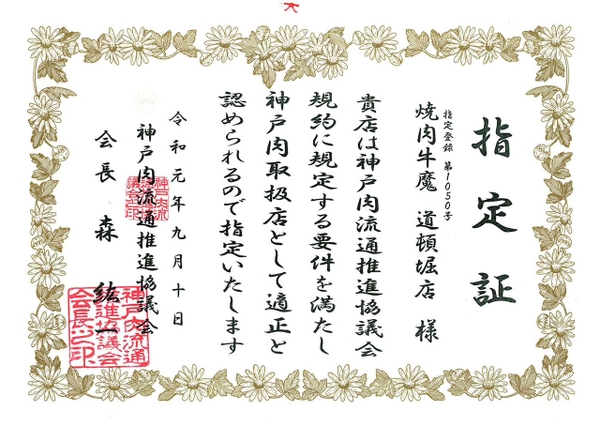 指定証
指定登録 第1050号
焼肉牛魔 道頓堀店 様
貴店は神戸肉流通推進協議会
規約に規定する要件を満たし
神戸肉取扱店として適正と
認められるので指定いたします
令和元年九月十日
神戸肉流通推進協議会
会長 森 紘一
神戸肉流通推進協議会会長之印